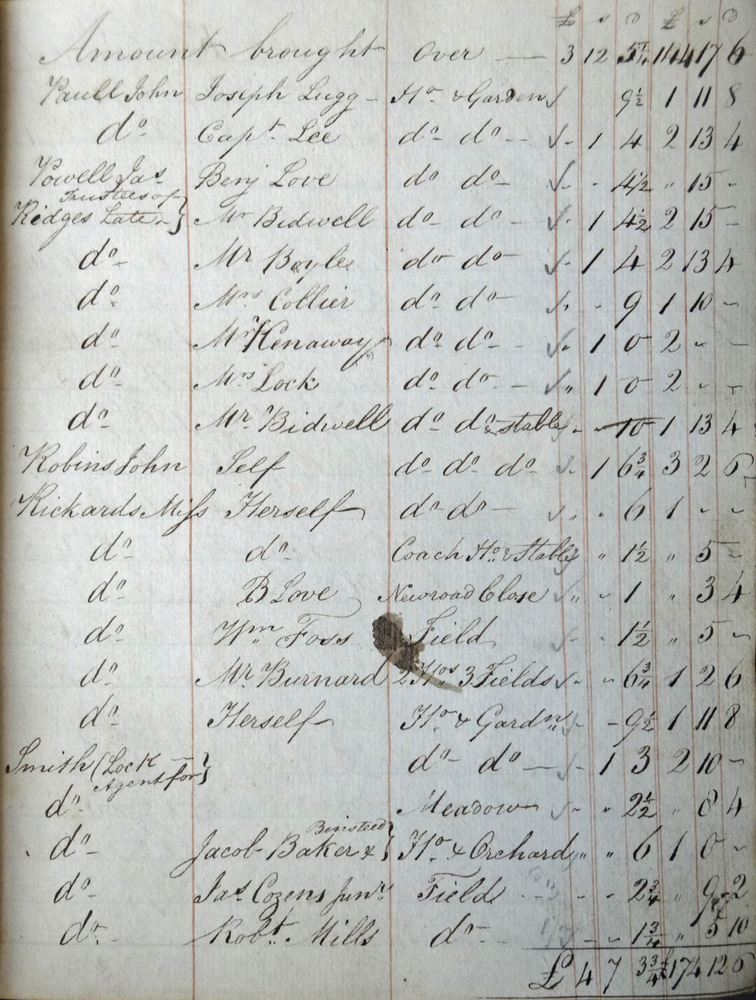 £ s d £ s d
Amount brought Over — 3 12 5¼ 144 17 6
Paull John Joseph Lugg - Ho. & Garden 9½ 1 11 8
do. Capt. Lee do. do. - 1 4 2 13 4
Powell Jas Benj Love do do - - 4½ " 15 -
Trustees of
Ridges Late } Mr Bidwell do. do - 1 4½ 2 15 -
do- Mr Boyle do do - 1 4 2 13 4
do. Mrs Collier do. do - - 9 1 10 -
do- Mr Kenaway do. do. - 1 0 2 - -
do- Mrs Lock do. do. - " 1 0 2 - -
do- Mr. Bidwell do do & stable - - 10 1 13 4
Robins John Self do do do - 1 6¾ 3 2 6
Rickards Miss Herself do do - . - 6 1 - -
do- do- Coach Ho. & Stable " 1½ " 5 -
do- B Love Newroad Close " - 1 " 3 4
do- Wm Foss Field - - 1½ " 5 -
do- Mr. Burnard 2 Hos 3 Fields - - 6¾ 1 2 6
do- Herself Ho & Gardn - - 9½ 1 11 8
Smith (Lock Agent for} do- do- - 1 3 2 10 -
do- Meadow - - 2½ " 8 4
Binsteed
do- Jacob Baker & } Ho. & Orchard " - 6 1 0 -
do- Jas Cozens Junr Field - - 2¾ " 9 2
do- Robt. Mills do- - - 1¾ " 5 10
£ 4 7 3¾ 174 12 6